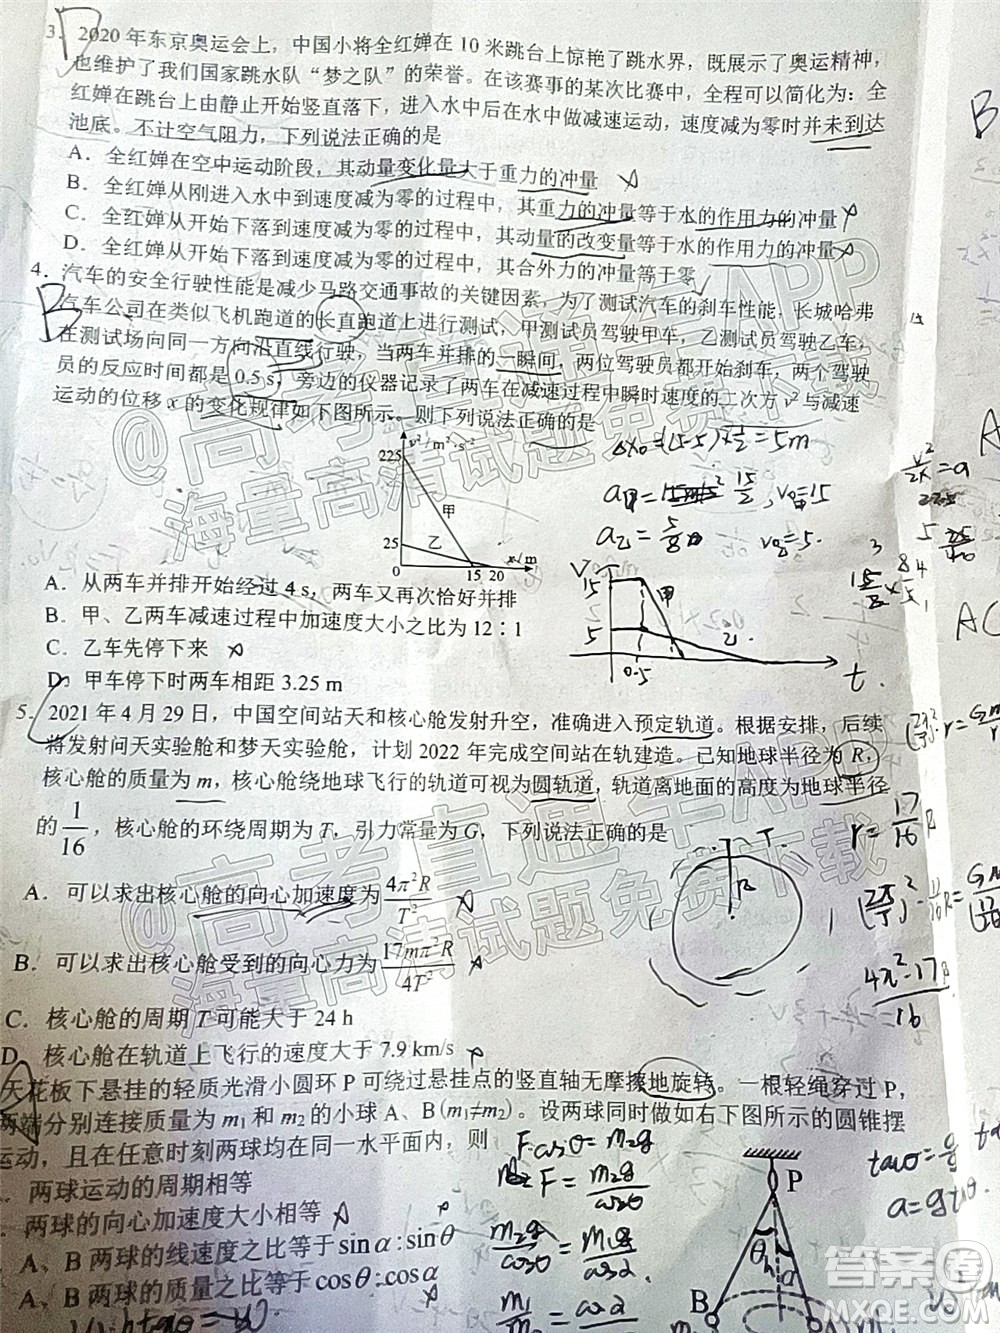 3. 2020 年东京奥运会上，中国小将全红婵在 10 米跳台上惊艳了跳水界，既展示了奥运精神，
也维护了我们国家跳水队“梦之队”的荣誉。在该赛事的某次比赛中，全程可以简化为：全
红婵在跳台上由静止开始竖直落下，进入水中后在水中做减速运动，速度减为零时并未到达
池底。不计空气阻力，下列说法正确的是
A．全红婵在空中运动阶段，其动量变化量大于重力的冲量
B．全红婵从刚进入水中到速度减为零的过程中，其重力的冲量等于水的作用力的冲量
C．全红婵从开始下落到速度减为零的过程中，其动量的改变量等于水的作用力的冲量
D．全红婵从开始下落到速度减为零的过程中，其合外力的冲量等于零
4．汽车的安全行驶性能是减少马路交通事故的关键因素，为了测试汽车的刹车性能，长城哈弗
B
汽车公司在类似飞机跑道的长直跑道上进行测试，甲测试员驾驶甲车，乙测试员驾驶乙车，
在测试场向同一方向沿直线行驶，当两车并排的一瞬间，两位驾驶员都开始刹车，两个驾驶
员的反应时间都是 0.5 s，旁边的仪器记录了两车在减速过程中瞬时速度的二次方 v² 与减速
运动的位移 x 的变化规律如下图所示。则下列说法正确的是
v²/m²·s⁻²
225
甲
乙
25
0
15 20
x/m
=5m
v甲=15
v乙=5.
V
15
5
甲
乙
0.5
t
A．从两车并排开始经过 4 s，两车又再次恰好并排
B．甲、乙两车减速过程中加速度大小之比为 12∶1
C．乙车先停下来
D．甲车停下时两车相距 3.25 m
5．2021 年 4 月 29 日，中国空间站天和核心舱发射升空，准确进入预定轨道。根据安排，后续
将发射问天实验舱和梦天实验舱，计划 2022 年完成空间站在轨建造。已知地球半径为 R，
核心舱的质量为 m，核心舱绕地球飞行的轨道可视为圆轨道，轨道离地面的高度为地球半径
的 1/16，核心舱的环绕周期为 T，引力常量为 G，下列说法正确的是
r=17/16 R
A．可以求出核心舱的向心加速度为 4π²R/T²
B．可以求出核心舱受到的向心力为 17mπ²R/4T²
C．核心舱的周期 T 可能大于 24 h
D．核心舱在轨道上飞行的速度大于 7.9 km/s
天花板下悬挂的轻质光滑小圆环 P 可绕过悬挂点的竖直轴无摩擦地旋转。一根轻绳穿过 P，
两端分别连接质量为 m₁ 和 m₂ 的小球 A、B(m₁≠m₂)。设两球同时做如右下图所示的圆锥摆
运动，且在任意时刻两球均在同一水平面内，则
两球运动的周期相等
两球的向心加速度大小相等
A、B 两球的线速度之比等于 sinα:sinθ
A、B 两球的质量之比等于 cosθ:cosα
F·cosθ=m₂g
F=m₂g/cosθ
m₂g/cosθ
m₁g/cosα
P
θ
h
α
B
@高考直通车APP
海量高清试题免费下载
@高考直通车APP
海量高清试题免费下载
答案圈
MXQE.COM